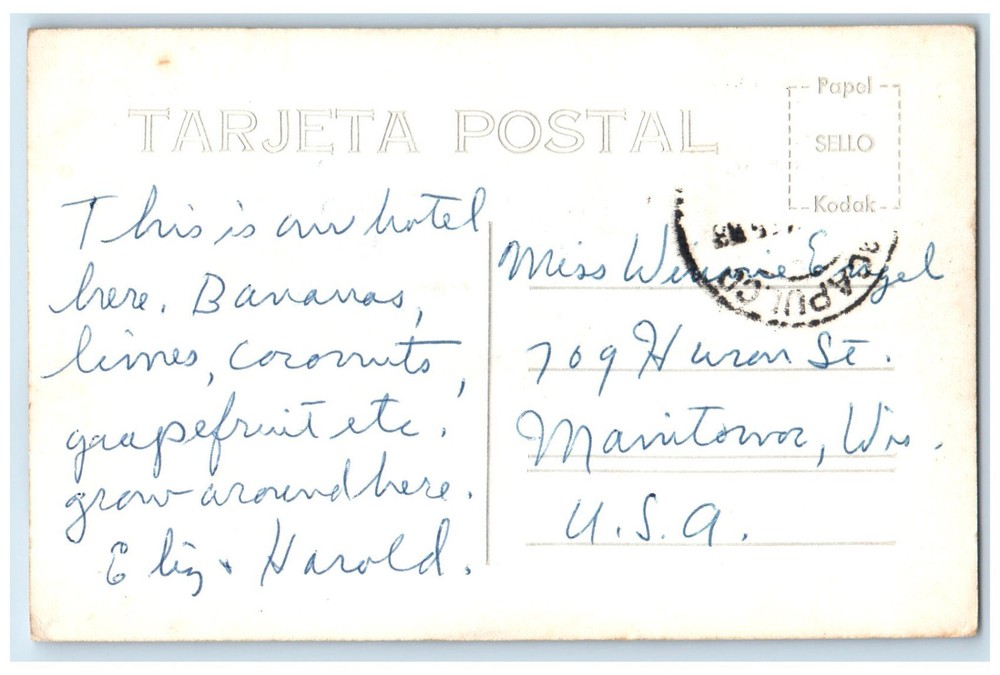 TARJETA POSTAL
Papel
SELLO
Kodak
ACAPULCO
This is our hotel
here. Bananas,
limes, coconuts,
graapefruit etc.
grow around here.
Eliz & Harold.
Miss Winnie Engel
709 Huron St.
Manitowoc, Wis.
U.S.A.